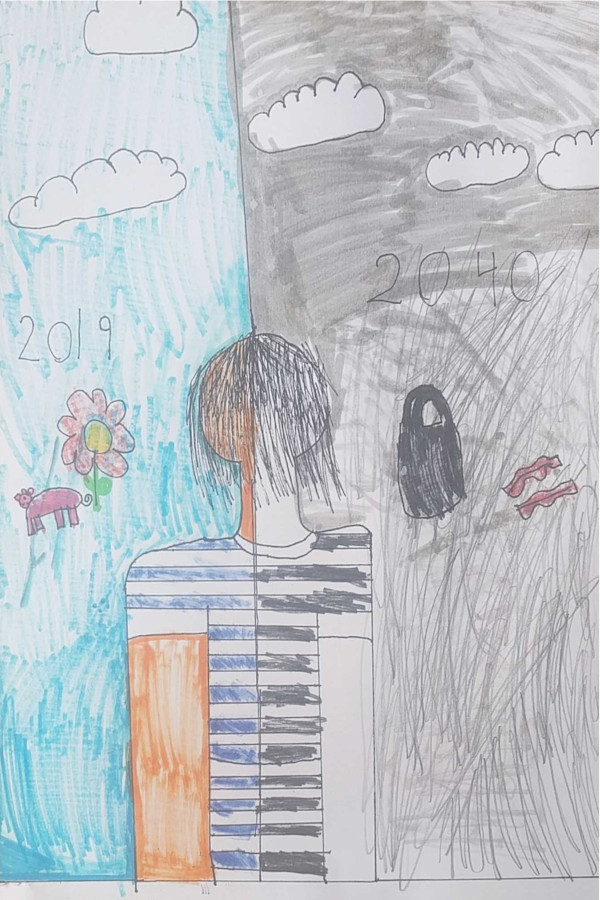 2019
2040